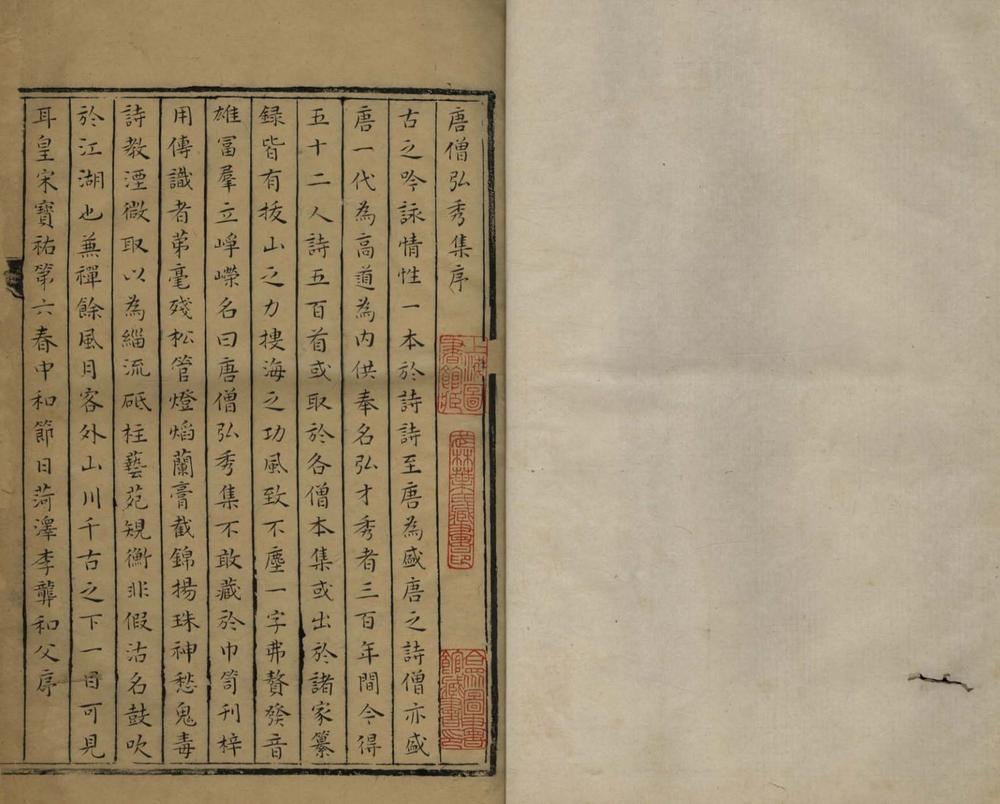 唐僧弘秀集序
古之吟詠情性一本於詩詩至唐為盛唐之詩僧亦盛
唐一代為高道為内供奉名弘才秀者三百年間今得
五十二人詩五百首或取於各僧本集或出於諸家纂
録皆有拔山之力摟海之功風致不塵一字弗贅發音
雄冨羣立崢嶸名曰唐僧弘秀集不敢藏於巾笥刊梓
用傳識者苐毫殘松管燈熖蘭膏截錦揚珠神愁鬼毒
詩教湮微取以為緇流砥柱藝苑䂓衡非假沽名鼓吹
於江湖也兼禪餘風月客外山川千古之下一目可見
耳皇宋寶祐第六春中和節日菏澤李龏和父序
上海圖書館藏
葉藏書印
合衆圖書館藏書印